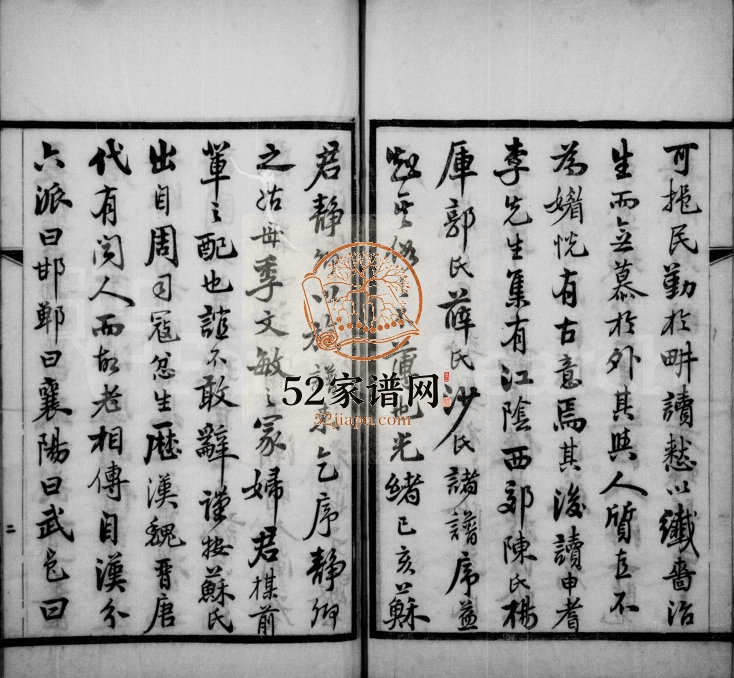 可挹民勤於畊讀愁以纖嗇治
生而無慕於外其與人質直不
為媚悅有古意焉其後讀申耆
李先生集有江陰西郊陳氏楊
厙郭氏薛氏沙氏諸譜序益
也光緒己亥蘇
君靜
以族譜來乞序靜
之姑母季文敏之冢婦君楳前
輩之配也誼不敢辭謹按蘇氏
出自周司寇忿生歷漢魏晋唐
代有聞人而故老相傳自漢分
六派曰邯鄲曰襄陽曰武邑曰
二
52家谱网
52jiapu.com